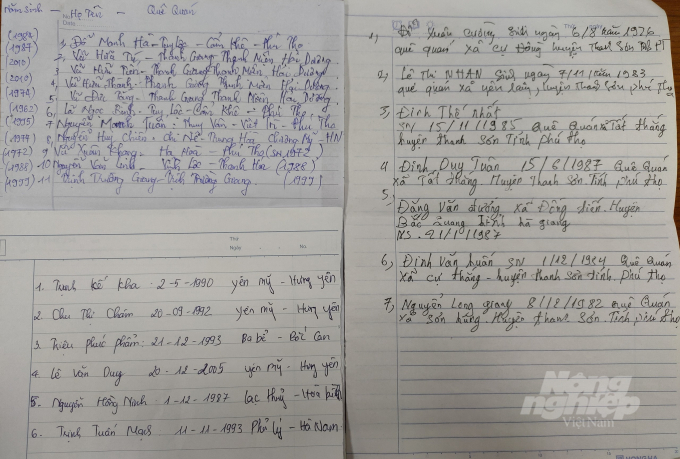 Năm sinh - Họ Tên - Quê Quán
(1987) 1. Đỗ Mạnh Hà - Tuy Lộc - Cẩm Khê - Phú Thọ
(1987) 2. Vũ Hữu - Thanh Giang - Thanh Miện - Hải Dương
(2010) 3. Vũ Hữu Tiến - Thanh Giang - Thanh Miện - Hải Dương
(2010) 4. Vũ Hữu Thanh - Thanh Giang Thanh Miện Hải Dương
(1974) 5. Vũ Đức - Thanh Giang Thanh Miện Hải Dương
(1962) 6. Lê Ngọc - Tuy Lộc - Cẩm Khê - Phú Thọ
(1995) 7. Nguyễn Mạnh Tuấn - Thụy Vân - Việt Trì - Phú Thọ
(1977) 8. Nguyễn Huy Chiến - Chương Mỹ - HN
(1972) 9. Vũ Xuân - Hạ Hoà - Phú Thọ (SN 1972)
(1988) 10. Nguyễn Văn - Vĩnh Lộc - Thanh Hoá (1988)
(1999) 11. Trường Giang (1999)
Thứ
Ngày No.
1. Trịnh Kế Kha: 2-5-1990 Yên Mỹ - Hưng Yên
2. Chu Thị Chám 20-09-1992 Yên Mỹ - Hưng Yên
3. Triệu phúc phẩm: 21-12-1993 Ba bể - Bắc Cạn
4. Lê Văn Duy 20-12-2005 Yên Mỹ - Hưng Yên
5. Nguyễn Hồng Ninh: 1-12-1987 Lạc thuỷ - Hoà bình
6. Trịnh Tuấn Mạnh 11-11-1993 Phủ Lý - Hà Nam
1, Xuân Cường Sinh ngày 6/8 năm 1976
quê quán xã cự Đồng huyện Thanh Sơn
2, Lê Thị NHÀN Sinh ngày 7/11/năm 1983
quê quán xã yên lãng, huyện Thanh Sơn phú thọ
3, Đinh Thế nhất
SN 15/11/1985 Quê Quán xã Tất thắng
huyện thanh Sơn Tỉnh phú thọ
4 Đinh Duy Tuân 15/6/1987 Quê Quán
xã Tất thắng. Huyện Thanh Sơn. Tỉnh phú thọ
5,
Đặng Văn dưỡng xã Đồng tiến. Huyện
Bắc Quang Tỉnh hà giang
NS. 21/1/1987
6, Đinh Văn huấn SN 1/12/1984 Quê Quán
xã cự thắng - huyện thanh Sơn tỉnh phú thọ
7, Nguyễn Long giang 8/8/1982 quê Quán
xã Sơn hùng. Huyện thanh Sơn. Tỉnh phú thọ
Nông nghiệp
Việt Nam
HONGHA